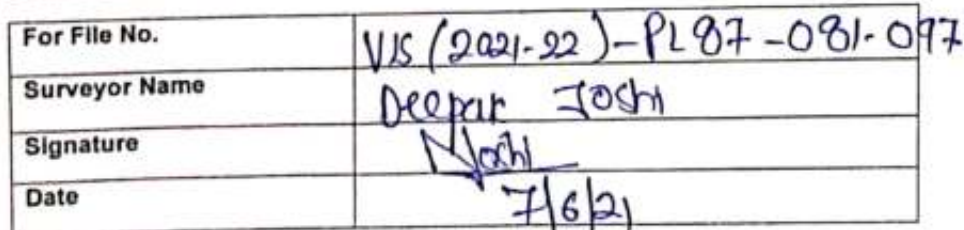 For File No. VIS (2021-22)-PL87-081-097
Surveyor Name Deepak Joshi
Signature Joshi
Date 7/6/21